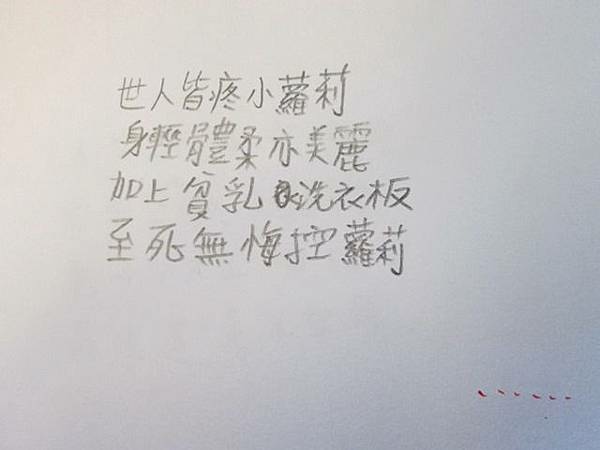 世人皆疼小蘿莉
身輕體柔亦美麗
加上貧乳洗衣板
至死無悔控蘿莉